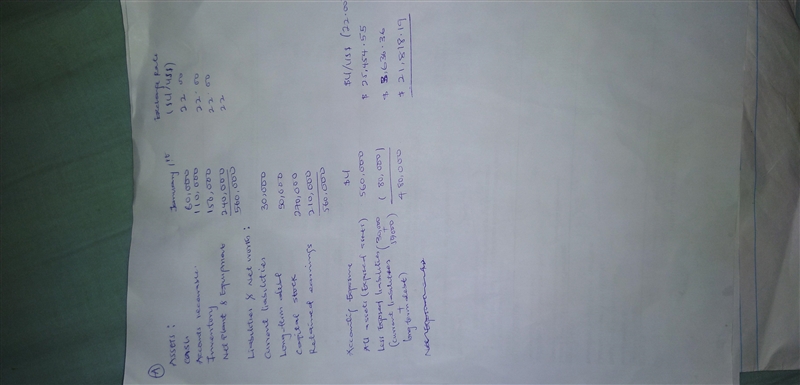 (A)
Exchange Rate
Assets: January 1st (SU/US$)
Cash 60,000 22.00
Accounts receivable 110,000 22.00
Inventory 150,000 22.00
Net Plant & Equipment 240,000 22
560,000
Liabilities & Net worth:
Current liabilities 30,000
Long-term debt 50,000
Capital stock 270,000
Retained earnings 210,000
560,000
Accounting Exposure SU SU/US$ (22.00
All assets (Exposed assets) 560,000 $ 25,454.55
Less Exposed liabilities (30,000 + (80,000) $ 3,636.36
(current liabilities
+
long term debt) 480,000 $ 21,818.19